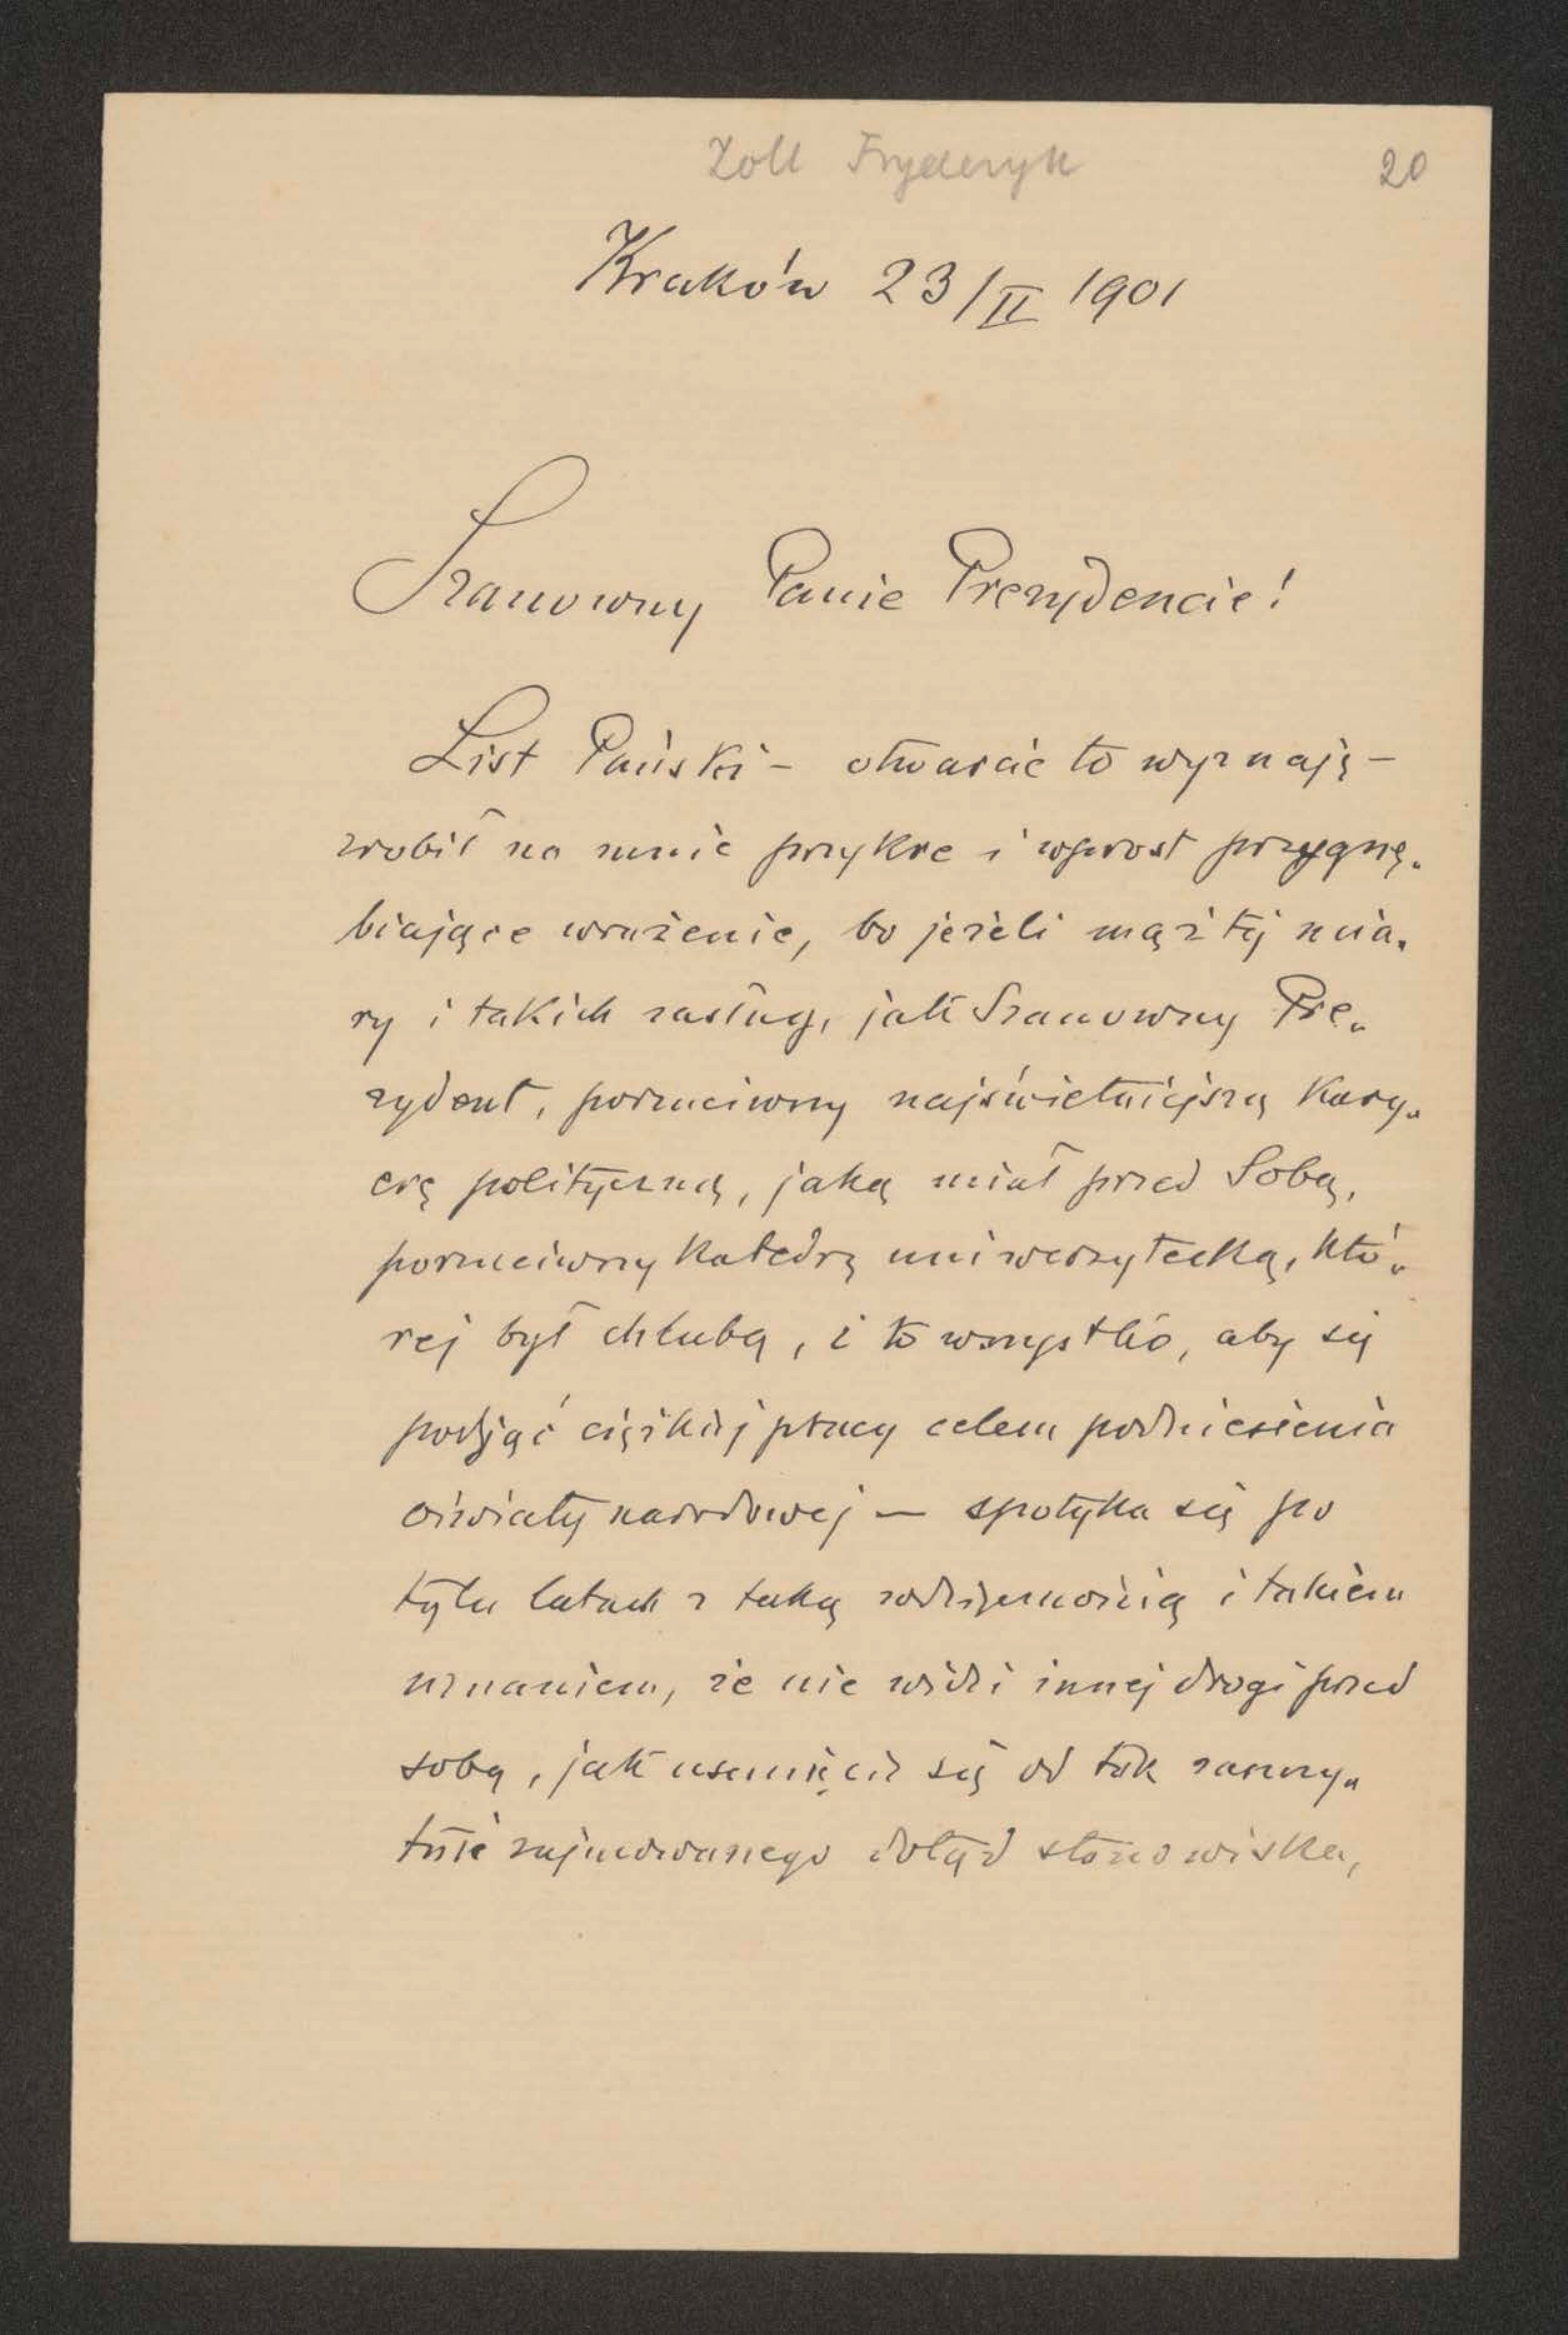 Zoll Fryderyk
20
Kraków 23/II 1901
Szanowny Panie Prezydencie!
List Pański – otwarcie to wyznaję –
zrobił na mnie przykre i wprost przygnę-
biające wrażenie, bo jeżeli mąż téj mia-
ry i takich zasług, jak Szanowny Pre-
zydent, porzuciwszy najświetniejszą kary-
erę polityczną, jaką miał przed Sobą,
porzuciwszy katedrę uniwersytecką, któ-
rej był chlubą, i to wszystko, aby się
podjąć ciężkiej pracy celem podniesienia
oświaty narodowej — spotyka się po
tylu latach z taką wdzięcznością i takiem
uznaniem, że nie widzi innej drogi przed
sobą, jak usunięcie się od tak zaszczy-
tnie zajmowanego dotąd stanowiska,